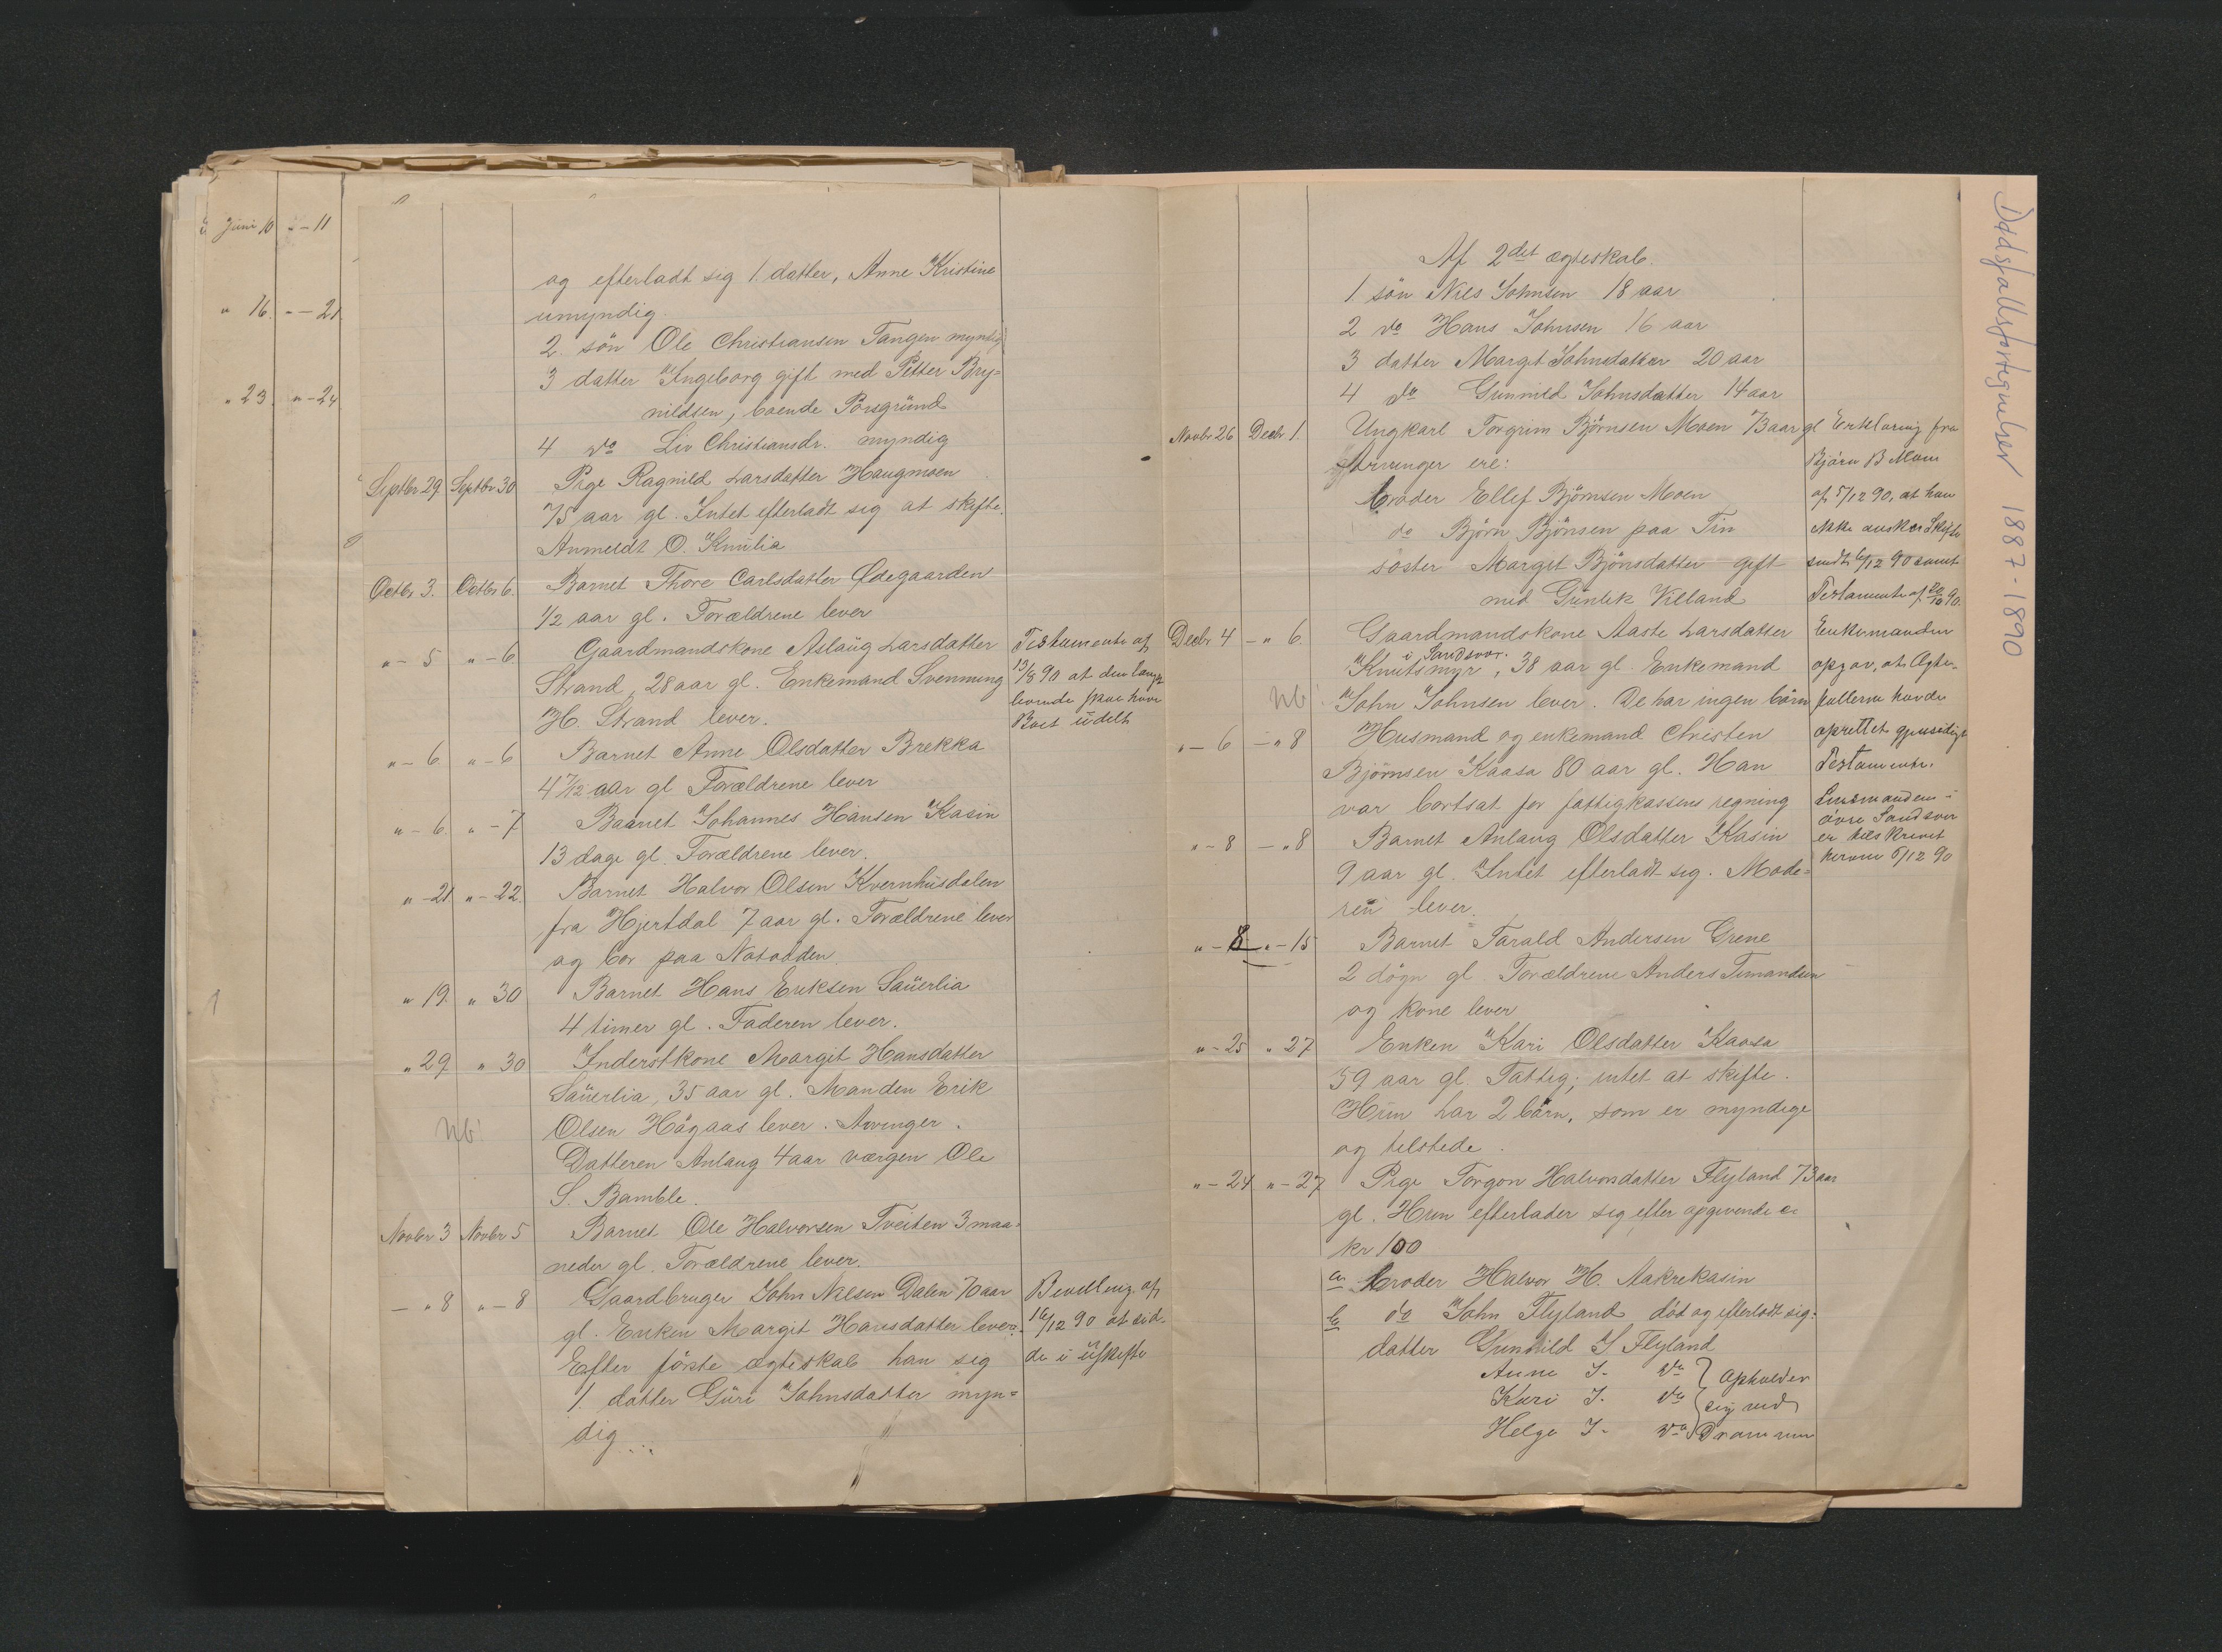 Juni 10 - 11
" 16. - - 21
" 23. " - 24
og efterladt sig 1. datter, Anne Kristine
umyndig
2. sön Ole Christiansen Tangen myndig
3 datter Ingeborg gift med Petter Bry=
nildsen, boende Porsgrund
4 do Liv Christiansdr. myndig
Septbr 29 Septbr 30 Pige Ragnild Larsdatter Haugmoen
75 aar gl. Intet efterladt sig at skifte.
Anmeldt O. Knulia
Octbr 3. Octbr 6. Barnet Thore Carlsdatter Ødegaarden
1/2 aar gl. Forældrene lever
" - 5 " - 6 Gaardmandskone Aslaug Larsdatter
Strand, 28 aar gl. Enkemand Svenning
H. Strand lever.
Testamente af
13/8 90 at den længst
levende skal have
Boet udelt
" - 6 " - 6 Barnet Anne Olsdatter Brekka
4 7/12 aar gl Forældrene lever
" - 6. " - 7 Baanet Johannes Hansen Kasin
13 dage gl. Forældrene lever.
" - 21 " - 22. Barnet Halvor Olsen Kvernhusdalen
fra Hjertdal 7 aar gl. Forældrene lever
og bor paa Notodden.
" 19. " 30 Barnet Hans Eriksen Sauerlia
4 timer gl. Faderen lever.
" 29 " 30 Inderstkone Margit Hansdatter
Sauerlia, 35 aar gl. Manden Erik
NB! Olsen Högaas lever. Arvinger.
Datteren Anlaug 4 aar værgen Ole
S. Bamble.
Novbr 3 Novbr 5 Barnet Ole Halvorsen Tveiten 3 maa=
neder gl. Forældrene lever.
- " 8 " - 8 Gaardbruger John Nilsen Dalen 70 aar
gl. Enken Margit Hansdatter lever.
Efter förste ægteskab han sig
1. datter Guri Johnsdatter myn=
dig
Bevilling af
16/12 90 at sid-
de i uskifte
Af 2det ægteskab.
1 sön Nils Johnsen 18 aar
2 do Hans Johnsen 16 aar
3 datter Margit Johnsdatter 20 aar
4 do Gunnild Johnsdatter 14 aar
Novbr 26 Decbr 1. Ungkarl Torgrim Björnsen Moen 73 aar gl
Arvinger ere:
broder Ellef Björnsen Moen
do Björn Björnsen paa Tin
söster Margit Björnsdatter gift
med Gunlek Villand
Erklæring fra
Björn B Moen
af 5/12 90, at han
ikke ansker Skifte
sendt 6/12 90 samt
Testamente af 20/10 90.
Decbr 4 - " 6 Gaardmandskone Aaste Larsdatter
i Sandsvær.
Knutsmyr, 38 aar gl. Enkemand
NB! John Johnsen lever. De har ingen börn
Enkemanden
opgav, at Ægte-
fællerne havde
oprettet gjensidigt
Testamente.
Lensmanden i
övre Sandsver
er tilskrevet
herom 6/12 90
" - 6 - " 8 Husmand og enkemand Christen
Björnsen Kaasa 80 aar gl. Han
var bortsat for fattigkassens regning
" - 8 - " 8 Barnet Anlaug Olsdatter Kasin
9 aar gl. Intet efterladt sig. Mode=
ren lever.
" - 8 " - 15 Barnet Tarald Andersen Grene
2 dögn gl Forældrene Anders Timandsen
og kone lever
" - 25 " 27 Enken Kari Olsdatter Kaasa
59 aar gl. Fattig; intet at skifte.
Hun har 2 börn, som er myndige
og tilstede.
" - 24 " - 27 Pige Torgon Halvorsdatter Flyland 73 aar
gl. Hun efterlader sig efter opgivende ca
kr 100
a broder Halvor H. Aakrekasin
b do John Flyland död og efterladt sig:
datter Gunhild J Flyland
Anne J. do } opholder
Kari J. do } sig ved
Helge J. do } Drammen
Dødsfallsfortegnelser 1887-1890